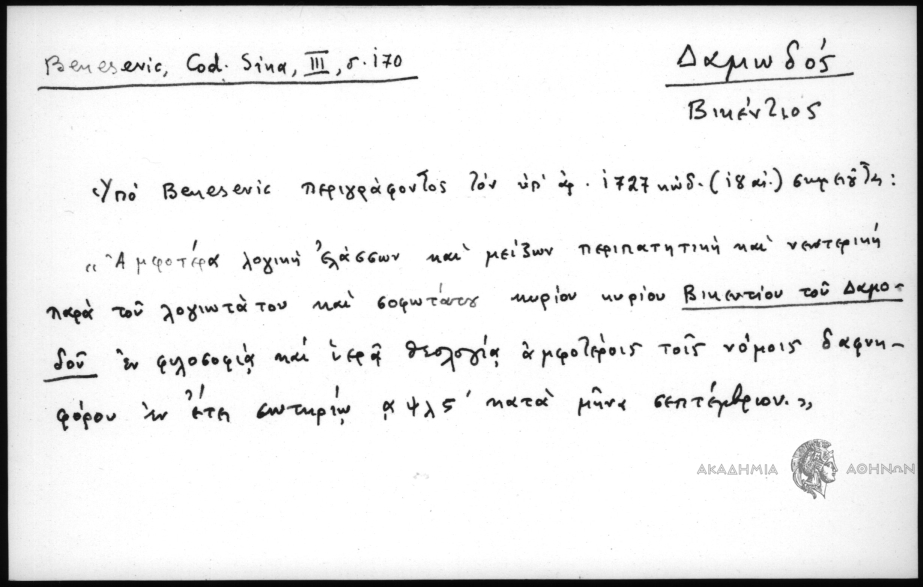 Benesevic, Cod. Sina, III, σ. 170
Δαμωδός
Βικέντιος
Ὑπό Benesevic περιγράφοντος τόν ὑπ' ἀρ. 1727 κώδ. (18 αἰ.) σημειοῦται:
«Ἀμφοτέρα λογική ἐλάσσων καὶ μείζων περιπατητική καὶ νεωτερική
παρὰ τοῦ λογιωτάτου καὶ σοφωτάτου κυρίου κυρίου Βικεντίου τοῦ Δαμο-
δοῦ ἐν φιλοσοφίᾳ καὶ ἱερᾷ θεολογίᾳ ἀμφοτέροις τοῖς νόμοις δαφνη-
φόρου ἐν ἔτει σωτηρίῳ ͵αψλς´ κατὰ μῆνα σεπτέμβριον.»
ΑΚΑΔΗΜΙΑ ΑΘΗΝΩΝ